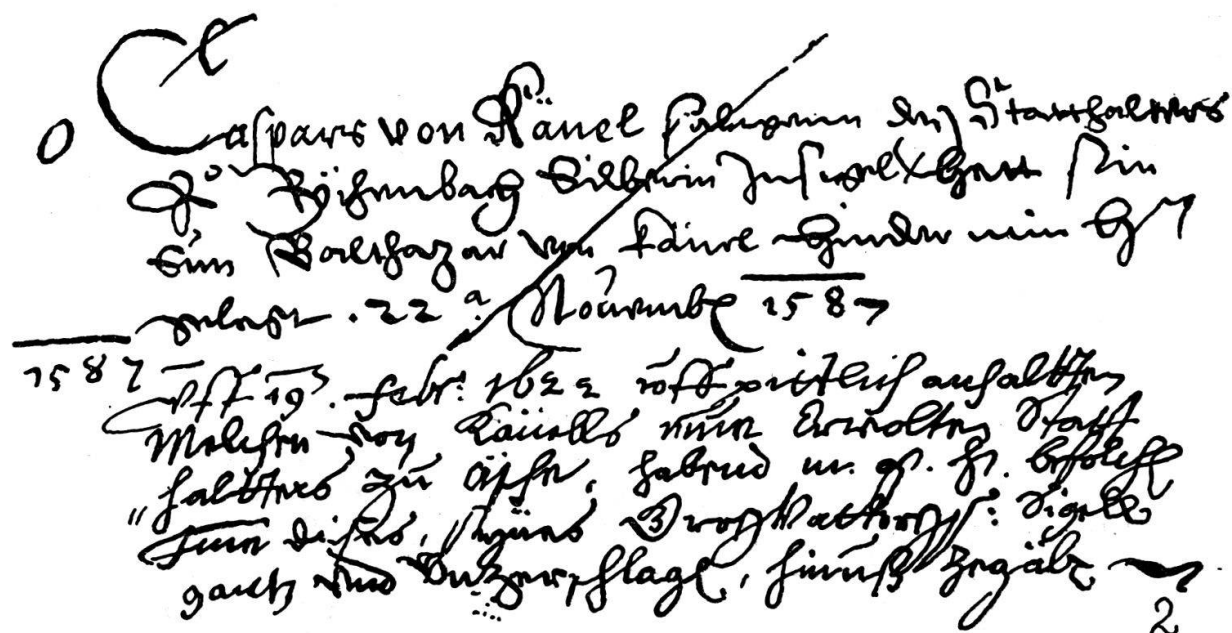 Caspars von Känel säligenn deß Statthalters
Zů Rychenbach Silberin Insigel hatt sin
Sun Balthazar von Känel hinder min h
gelegt . 22ᵃ. Novemb 1587
1587
Uff 19. Febr: 1622 uff pittlich anhaltten
Melchen von Känells nüw Erwolten Statt
haltters zů Äsche, habend m. g. h. befolch
Ime dises, synes Großvatters s: Sigell
gantz und Unzerschlagē, hinuß zegäbē
2